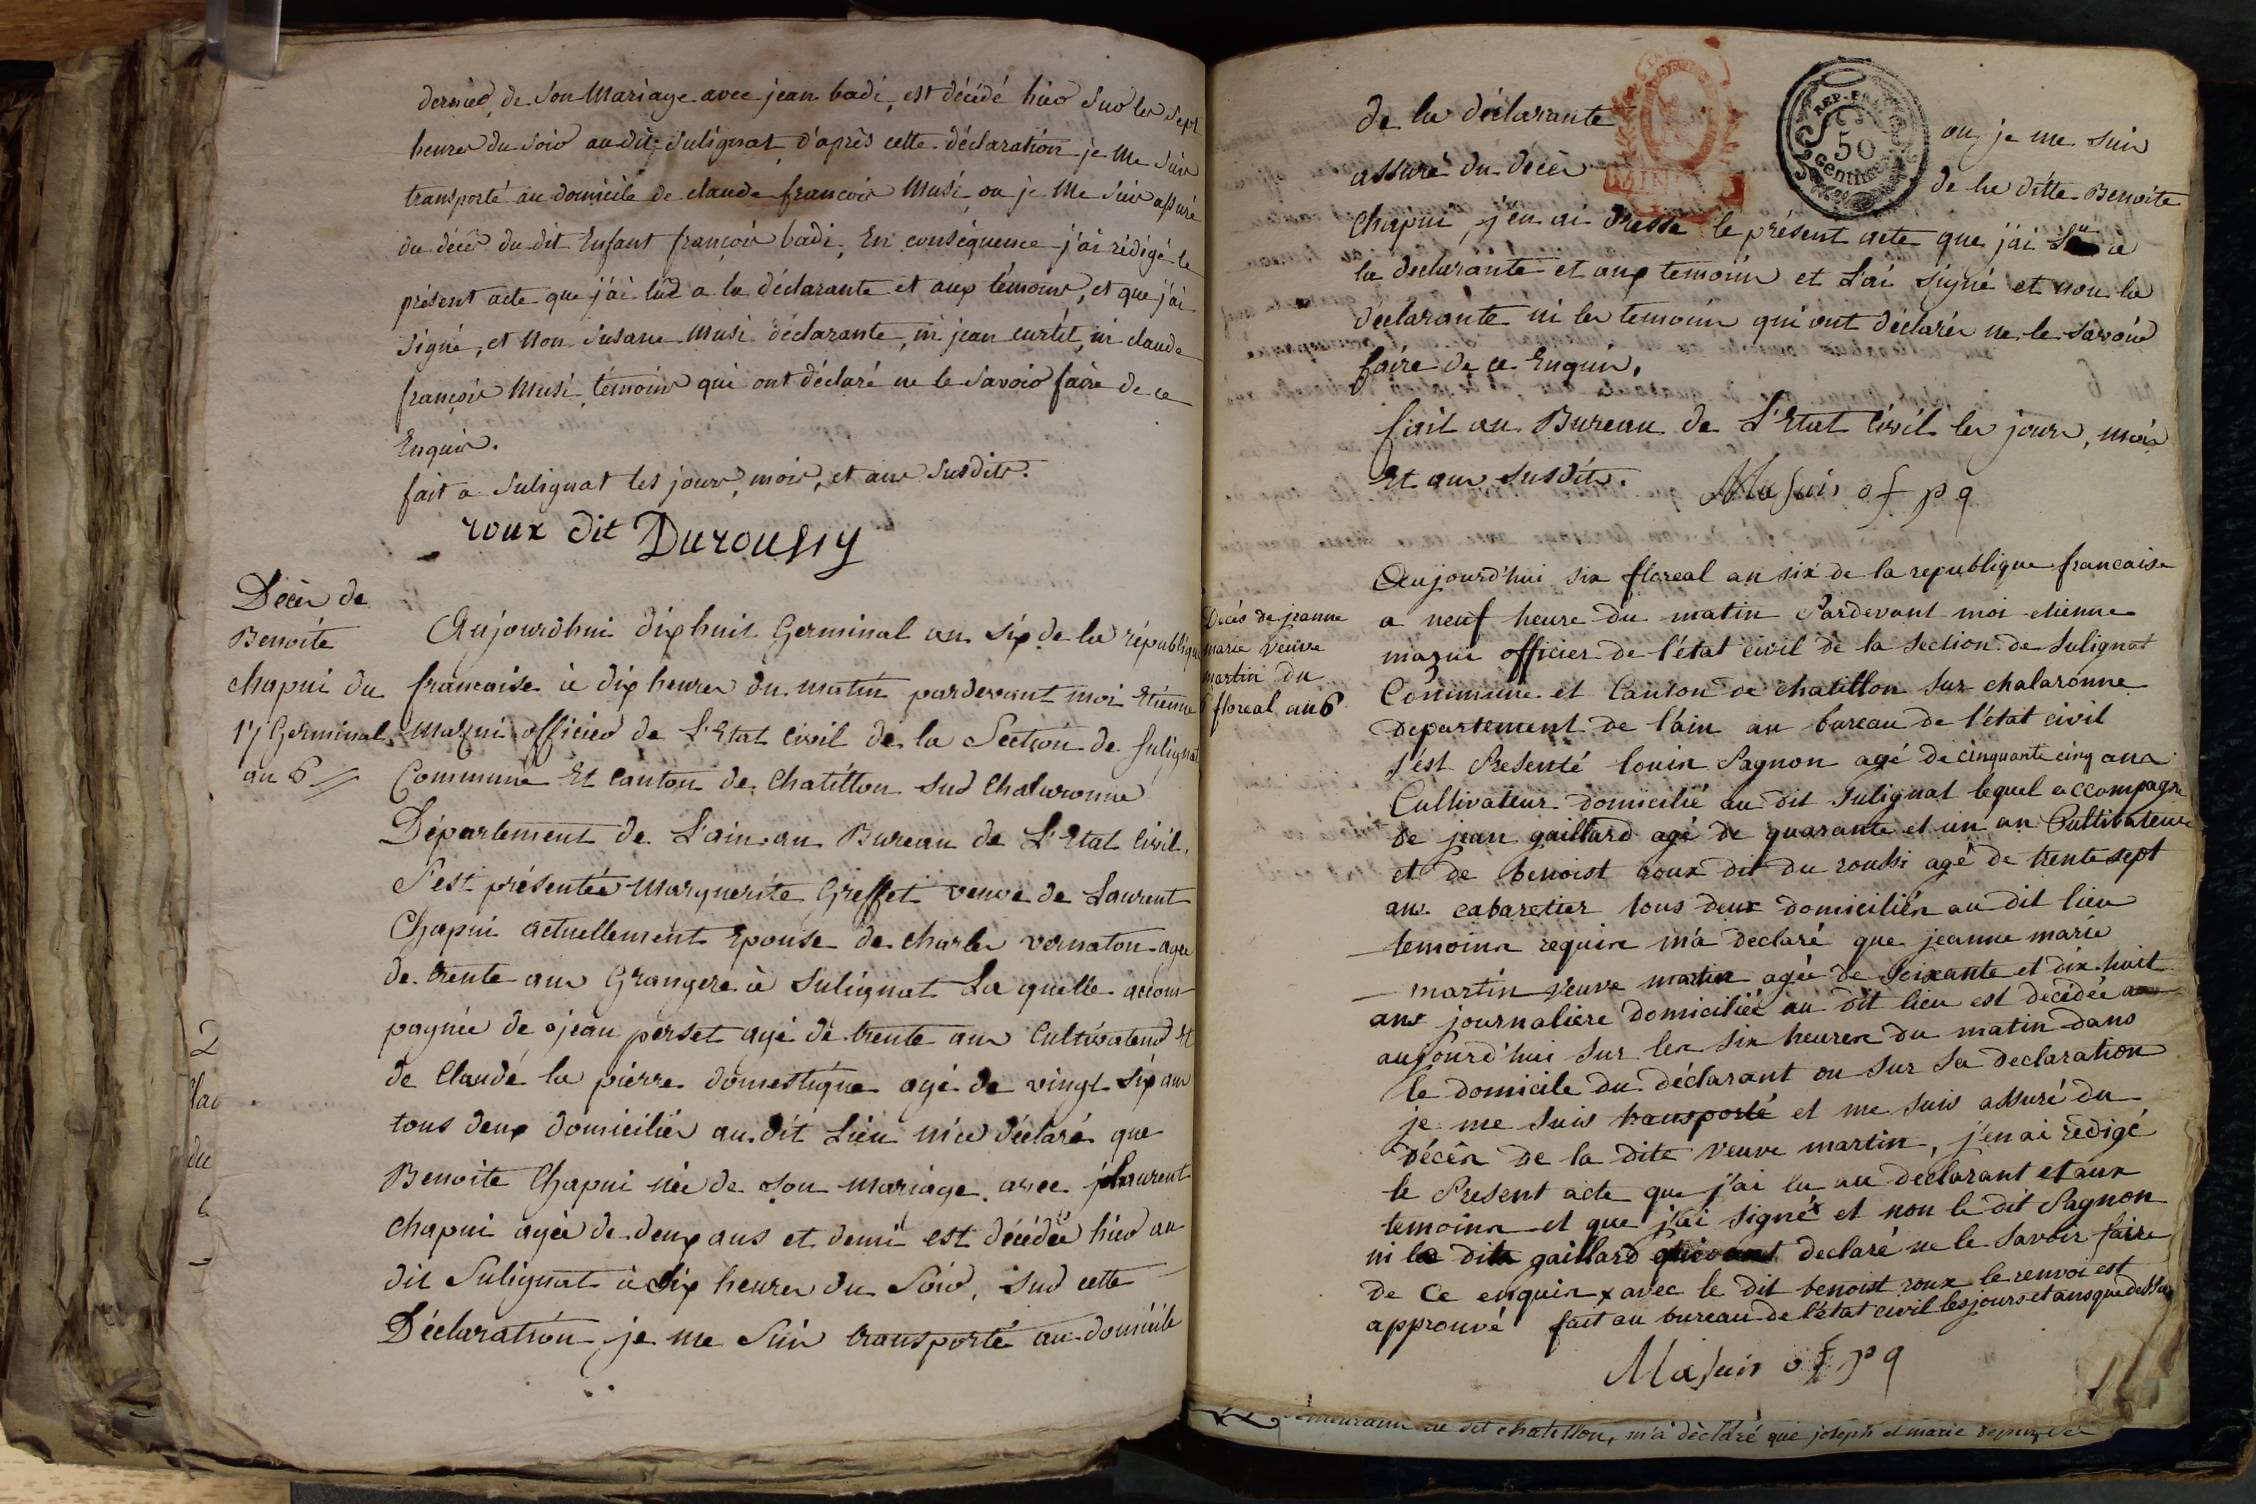 dernier, de son Mariage avec jean badi, est décédé hier sur les sept
heures du soir au dit Sulignat, d'après cette déclaration je me suis
transporté au domicile de claude françois Musi ou je me suis assuré
du décès du dit Enfant françois badi, En conséquence j'ai rédigé le
présent acte que j'ai lu a la déclarante et aux témoins, et que j'ai
signé, et non susane musi déclarante, ni jean curtet, ni claude
françois Musi, témoins qui ont déclaré ne le savoir faire de ce
Enquis.
fait a Sulignat les jours, mois, et ans susdits.
roux dit Duroussy
Décès de
Benoite
chapui du
17 Germinal
an 6
Aujourdhui dix huit Germinal an six de la république
francaise à dix heures du matin pardevant moi Etienne
Mazui officier de L'Etat civil de la Section de Sulignat
Commune Et Canton de Chatillon sur Chalaronne
Département de L'ain au Bureau de L'Etat Civil.
S'est présentée Marguerite Greffet veuve de Laurent
Chapui actuellement Epouse de charles vernaton agée
de trente ans Grangere à Sulignat La quelle accom-
pagnée de jean perset agé de trente ans Cultivateur Et
de Claude la pierre domestique agé de vingt six ans
tous deux domiciliés au dit Lieu m'a déclaré que
Benoite Chapui née de son mariage avec Laurent
chapui agée de deux ans et demi est décédée hier au
dit Sulignat à dix heures du Soir, sur cette
Déclaration je me suis transporté au domicile
2
du
de la déclarante ou je me suis
assuré du décès de la ditte Benoite
Chapui, j'en ai dressé le présent acte que j'ai lu a
la declarante et aux temoins et L'ai signé et non la
déclarante ni les temoins qui ont déclarés ne le savoir
faire de ce Enquis.
fait au Bureau de L'Etat Civil les jours, mois
Et ans susdits. Masuis o f p q
REP. FRA
50
Centimes
Décès de jeanne
marie veuve
martin du
6 floreal an 6
Aujourd'hui six floreal an six de la republique francaise
a neuf heure du matin Pardevant moi etienne
mazui officier de l'état civil de la section de Sulignat
Commune et Canton de chatillon sur chalaronne
departement de l'ain au bureau de l'état civil
s'est Presenté louis Pagnon agé de cinquante cinq ans
Cultivateur domicilié au dit Sulignat lequel accompagné
de jean gaillard agé de quarante et un an Cultivateur
et de benoist roux dit du roussi agé de trente sept
ans cabaretier tous deux domiciliés au dit lieu
temoins requis m'a declaré que jeanne marie
martin veuve martin agée de soixante et dix huit
ans journalière domiciliée au dit lieu est decédée
aujourd'hui sur les six heures du matin dans
le domicile du déclarant ou sur sa declaration
je me suis transporté et me suis assuré du
décès de la dite veuve martin, j'en ai rédigé
le Present acte que j'ai lu au declarant et aux
temoins et que j'ai signé x et non le dit Pagnon
ni le dit gaillard qui ont declaré ne le savoir faire
de ce enquis x avec le dit benoist roux le renvoi est
approuvé fait au bureau de l'état civil les jours et ans que dessus
Masuis o f p q
au dit chatillon, m'a déclaré que joseph et marie